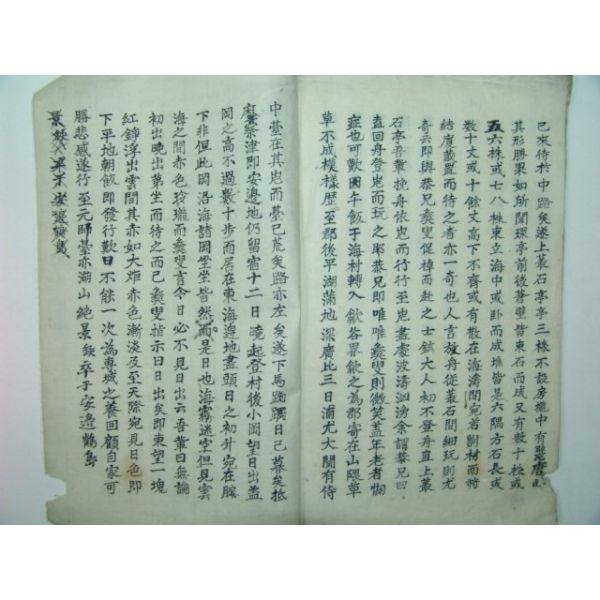 已來待於中路矣遂上叢石亭亭三棟不設房櫳中有
其形勝果如所聞環亭前後蒼壁皆束石而成又有數十株或
五六株或七八株束立海中或臥而成堆皆是六隅方石長或
數十丈或十餘丈高下不齊或有散在海濤間宛若斵材而將
結廈裁置而待之者亦一奇也人言放舟從叢石間細玩則尤
奇云即與恭兄彝叟促棹而赴之士鉉大人初不登舟直上叢
石亭吾輩挽舟依岸而行行至岸盡處波濤洶湧余謂恭兄曰
盍回舟登岸而玩之耶恭兄即唯唯彝叟則微笑盖年老者恟
㤼也可歎回午飯于海村轉入歙谷縣歙之為郡寄在山隈草
草不成模樣歷至郡後平湖蒲地深廣比三日浦尤大闊有待
中臺在其岸而臺已荒矣路亦左矣遂下馬躑躅日已暮矣抵
蔡津即安邊地仍留宿十二日曉起登村後小岡望日出盖
岡之高不過數十步而居在東海迤地盡頭日之初升宛在腋
下非但此岡沿海諸岡坐坐皆然而是日也海霧迷空但見雲
海之間赤色玲瓏而彝叟言今日必不見日出云吾輩曰無論
初出晚出第坐而待之而已彝叟指示曰日出矣即東望一塊
紅錚浮出雲間其赤如大炸赤色漸淡及至天際宛見日色即
下平地朝飯即發行歎日不能一次為專城之養回顧自家可
勝悲感遂行至元帥臺亦湖山絕景餤卒于安邊鶴島